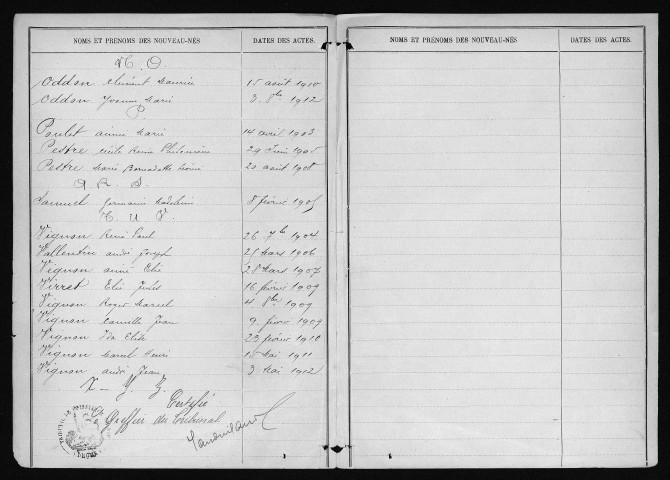 NOMS ET PRÉNOMS DES NOUVEAU-NÉS DATES DES ACTES.
N. O.
Oddon Clément Maurice 15 août 1910
Oddon Yvonne Marie 3 8bre 1912
P
Poulet Aimé Marie 14 avril 1903
Pestre Reine Philomène 29 Juin 1905
Pestre Marie Bernadette 20 août 1908
Q R. S.
Samuel Germaine Madeleine 8 février 1905
T. U V.
Vignon René Paul 26 7bre 1904
Vallentin André Joseph 25 Mars 1906
Vignon Aimé Elie 28 Mars 1907
Virret Elie Jules 16 février 1909
Vignon Roger Marcel 4 8bre 1909
Vignon Camille Jean 9 février 1909
Vignon Ida Elise 23 février 1910
Vignon Marcel Henri 15 Mai 1911
Vignon André Jean 3 Mai 1912
X - Y. Z.
Certifié
Greffier du Tribunal
NOMS ET PRÉNOMS DES NOUVEAU-NÉS DATES DES ACTES.